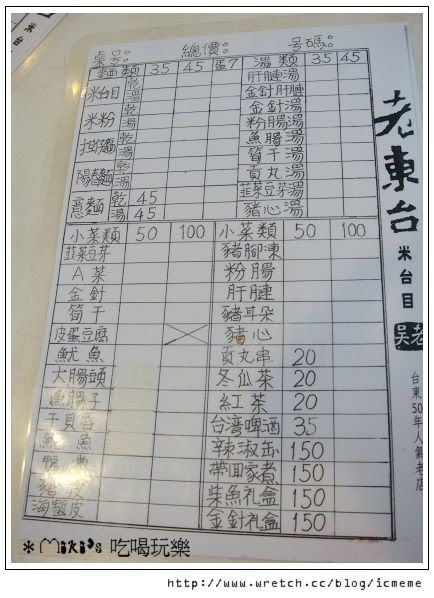 米台
桌号: 總價: 号碼:
麵類 35 45 蛋7 湯類 35 45
米台目 乾 湯
米粉 乾 湯
担仔麵 乾 湯
陽春麵 乾 湯
意麵 乾 45 湯 45
肝腱湯
金針肝腱
金針湯
粉腸湯
魚腸湯
筍干湯
貢丸湯
韮菜豆芽湯
豬心湯
小菜類 50 100 小菜類 50 100
韮菜豆芽 豬腳凍
A菜 粉腸
金針 肝腱
筍干 豬耳朵
皮蛋豆腐 豬心
魷魚 貢丸串 20
大腸頭 冬瓜茶 20
魚腸子 紅茶 20
干貝唇 台湾啤酒 35
魚 辣淑缶 150
帶回家煮 150
豬皮 柴魚礼盒 150
海蜇皮 金針礼盒 150
老東台
米台目
老吳
台東50年人氣老店
*Miki's 吃喝玩樂
http://www.wretch.cc/blog/icmeme